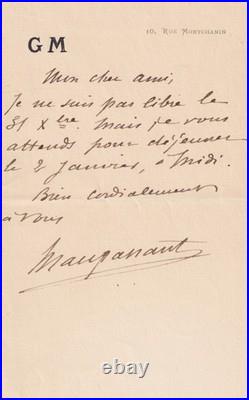 10, RUE MONTCHANIN
GM
Mon cher ami,
Je ne suis pas libre le
31 Xbre. Mais je vous
attends pour déjeuner
le 2 Janvier, à Midi.
Bien cordialement
à vous
Maupassant
withk.com